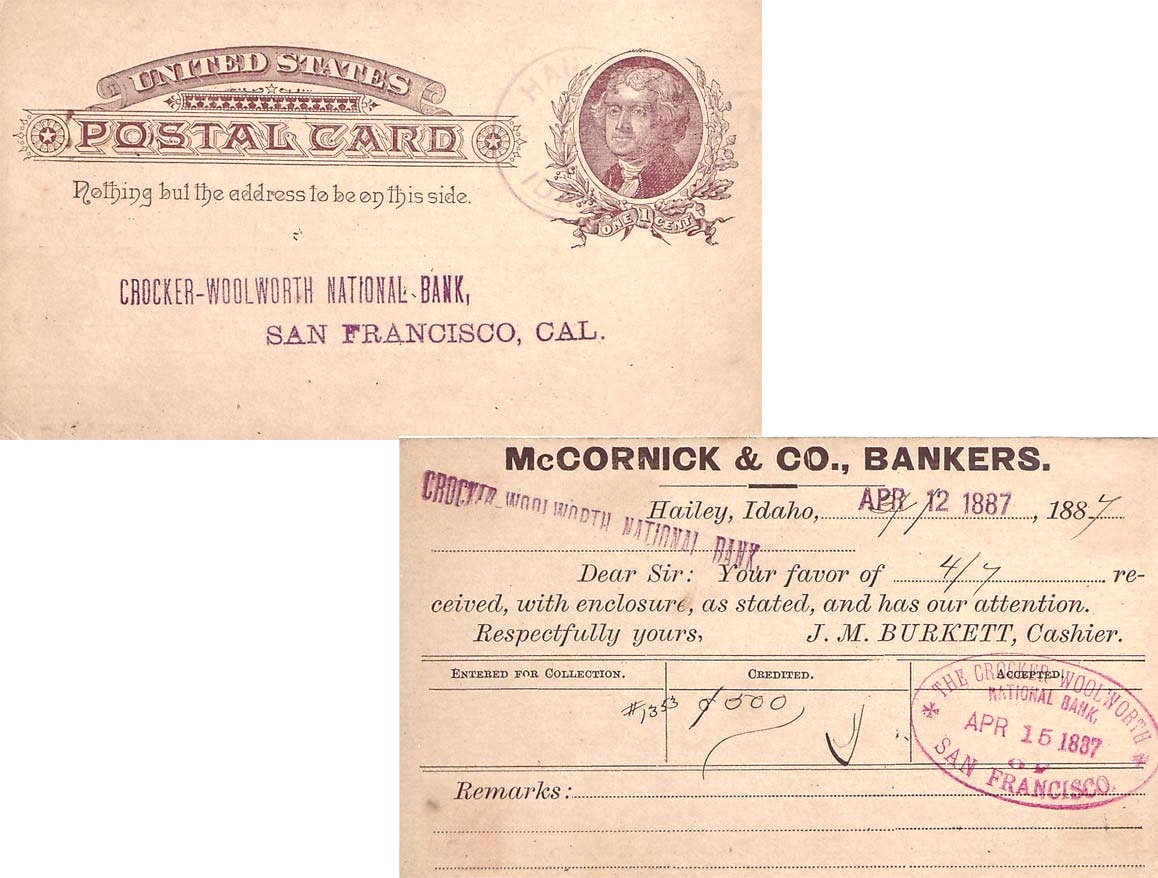 UNITED STATES
POSTAL CARD
Nothing but the address to be on this side.
ONE 1 CENT
CROCKER-WOOLWORTH NATIONAL BANK,
SAN FRANCISCO, CAL.
McCORNICK & CO., BANKERS.
CROCKER-WOOLWORTH NATIONAL BANK,
Hailey, Idaho, APR 12 1887, 1887
Dear Sir: Your favor of 4/7 re-
ceived, with enclosure, as stated, and has our attention.
Respectfully yours, J. M. BURKETT, Cashier.
ENTERED FOR COLLECTION. CREDITED. ACCEPTED.
500
THE CROCKER-WOOLWORTH
NATIONAL BANK,
APR 15 1887
OF
SAN FRANCISCO.
Remarks: